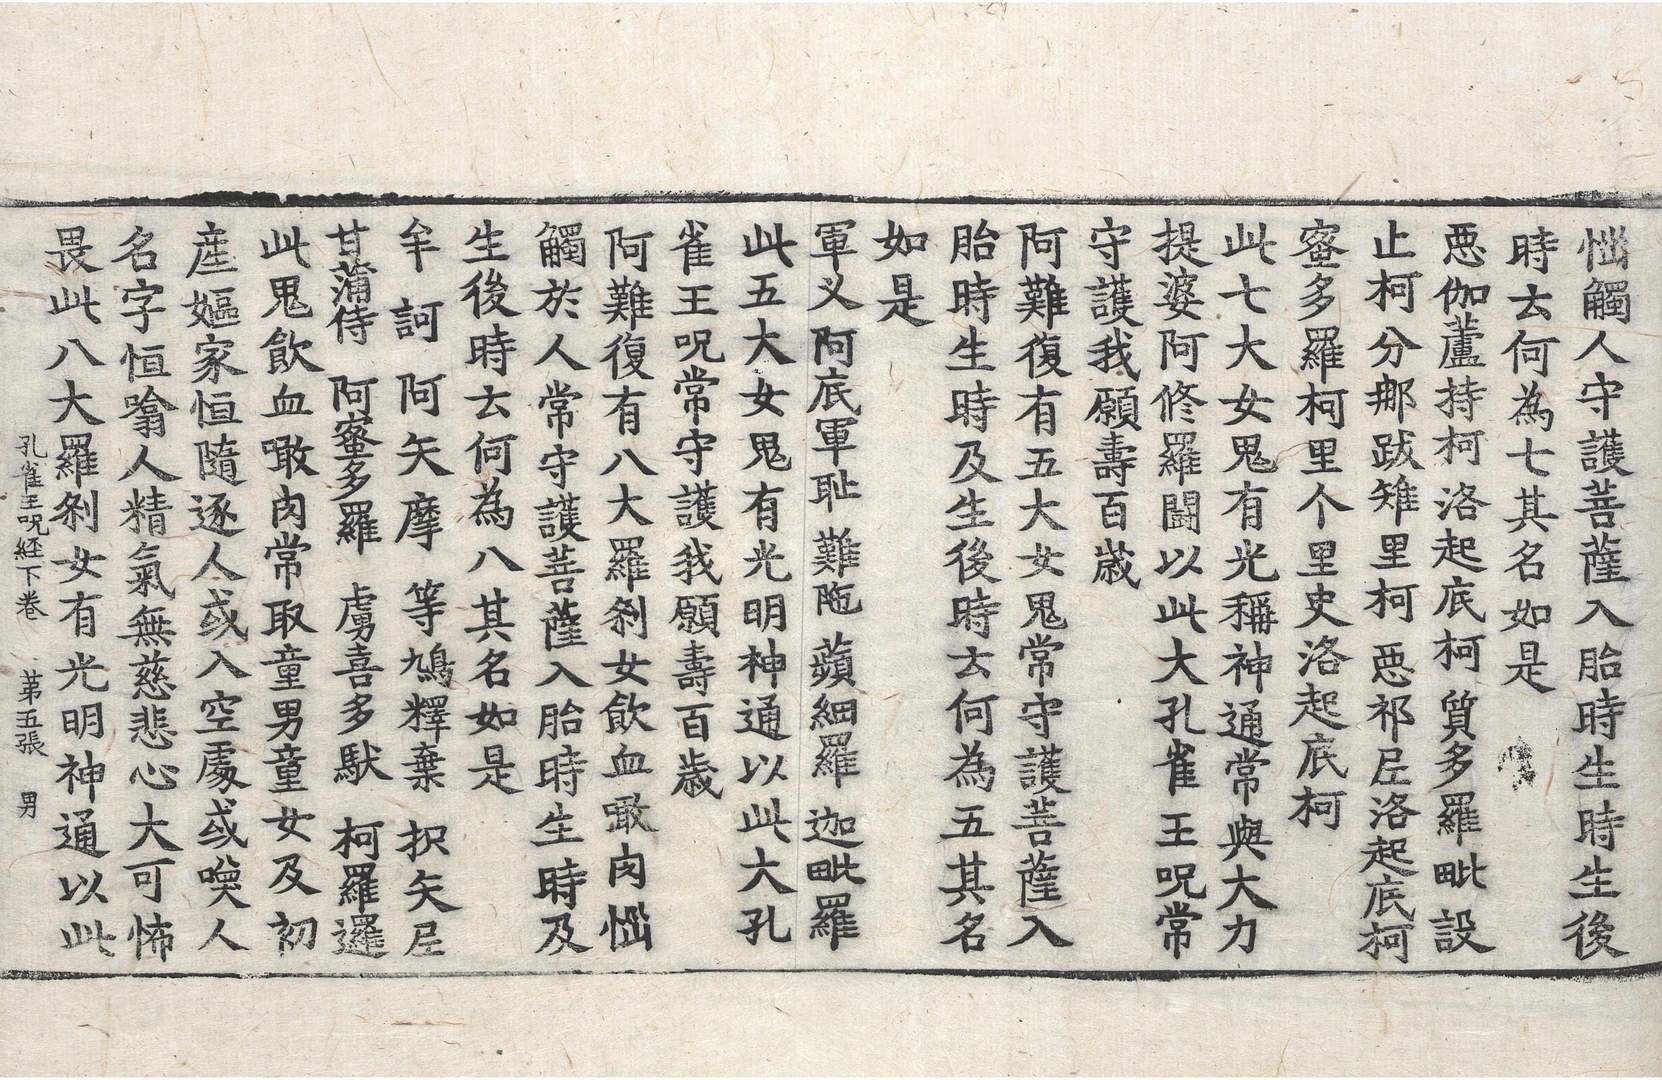 惱觸人守護菩薩入胎時生時生後
時云何為七其名如是
惡伽蘆持柯洛起底柯 質多羅毗設
止柯分那跋雉里柯 惡祁𡰱洛起底柯
蜜多羅柯里个里史洛起底柯
此七大女鬼有光稱神通常與大力
提婆阿修羅鬪以此大孔雀王呪常
守護我願壽百歲
阿難復有五大女鬼常守護菩薩入
胎時生時及生後時云何為五其名
如是
軍义 阿底軍耻 難陁 蘋細羅 迦毗羅
此五大女鬼有光明神通以此大孔
雀王呪常守護我願壽百歲
阿難復有八大羅剎女飲血噉肉惱
觸於人常守護菩薩入胎時生時及
生後時云何為八其名如是
牟訶 阿矢摩 等鳩釋棄 抧矢𡰱
甘蒲侍 阿蜜多羅 虜喜多馱 柯羅邏
此鬼飲血噉肉常取童男童女及初
産嫗家恒隨逐人或入空處或喚人
名字恒噏人精氣無慈悲心大可怖
畏此八大羅剎女有光明神通以此
孔雀王呪経下卷 苐五張 男